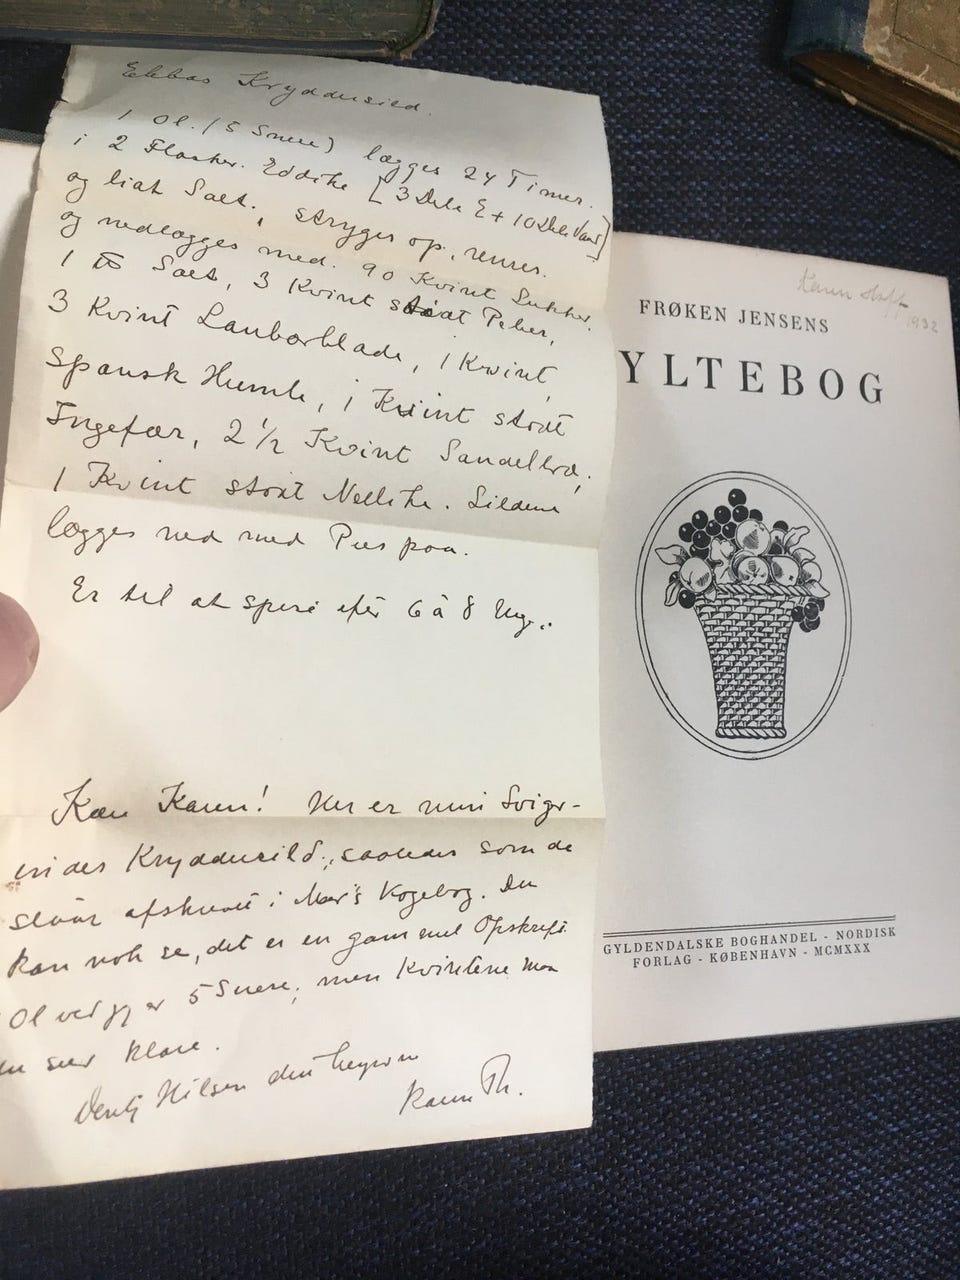 Ebbas Kryddersild.
1 Ol. (5 Snese) lægges 24 Timer.
i 2 Flasker. Eddike [3 Dele E + 10 Dele Vand]
og lidt Salt, stryges op, renses.
og nedlægges med. 90 Kvint Sukker.
1 ℔ Salt, 3 Kvint stødt Peber,
3 Kvint Laurbærblade, 1 Kvint
Spansk Humle, 1 Kvint stødt
Ingefær, 2 1/2 Kvint Sandelbræ.
1 Kvint stødt Nellike. Sildene
lægges ned med Pres paa.
Er til at spise efter 6 à 8 Uger.
Kære Karen! Her er min Sviger-
indes Kryddersild, saaledes som de
staar afskrevet i Mor's Kogebog. Du
kan nok se, det er en gammel Opskrift
Ol ved jeg er 5 Snese, men Kvintene maa
du selv klare.
Venlig Hilsen din
Karen Th.
Karen
1932
FRØKEN JENSENS
YLTEBOG
GYLDENDALSKE BOGHANDEL - NORDISK
FORLAG - KØBENHAVN - MCMXXX